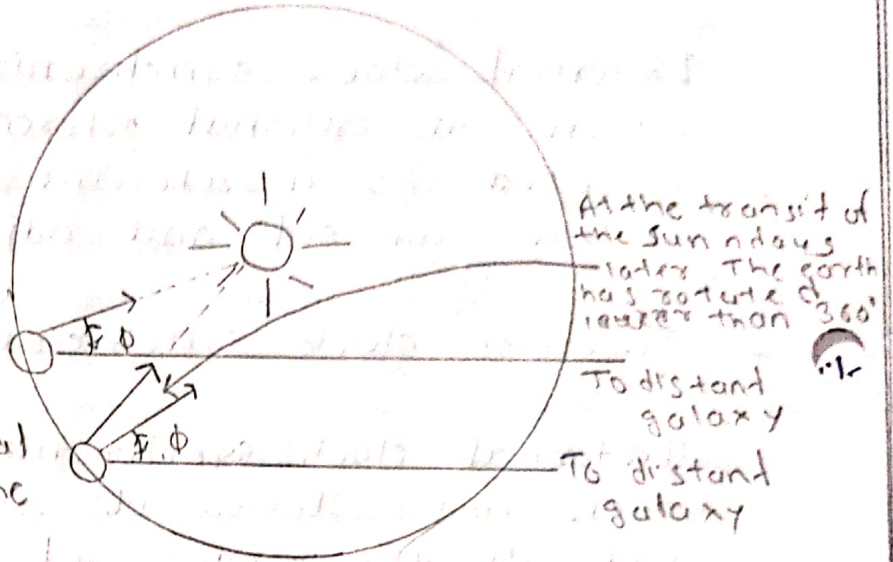 At the transit of
the Sun ndays
later The earth
has rotated
larger than 360°
ξ, φ
To distand
galaxy
al
ne
ξ, φ
To distand
galaxy